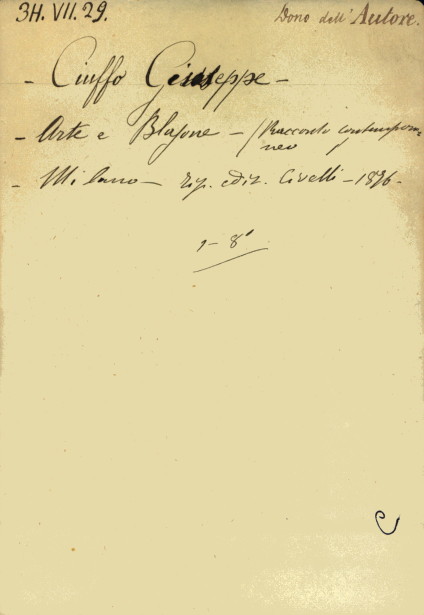 3H. VII. 29.
Dono dell'Autore.
- Ciuffo Giuseppe -
- Arte e Blasone - (Racconto contempora=
neo)
- Milano - Tip. edit. Civelli - 1896 -
1 - 8°